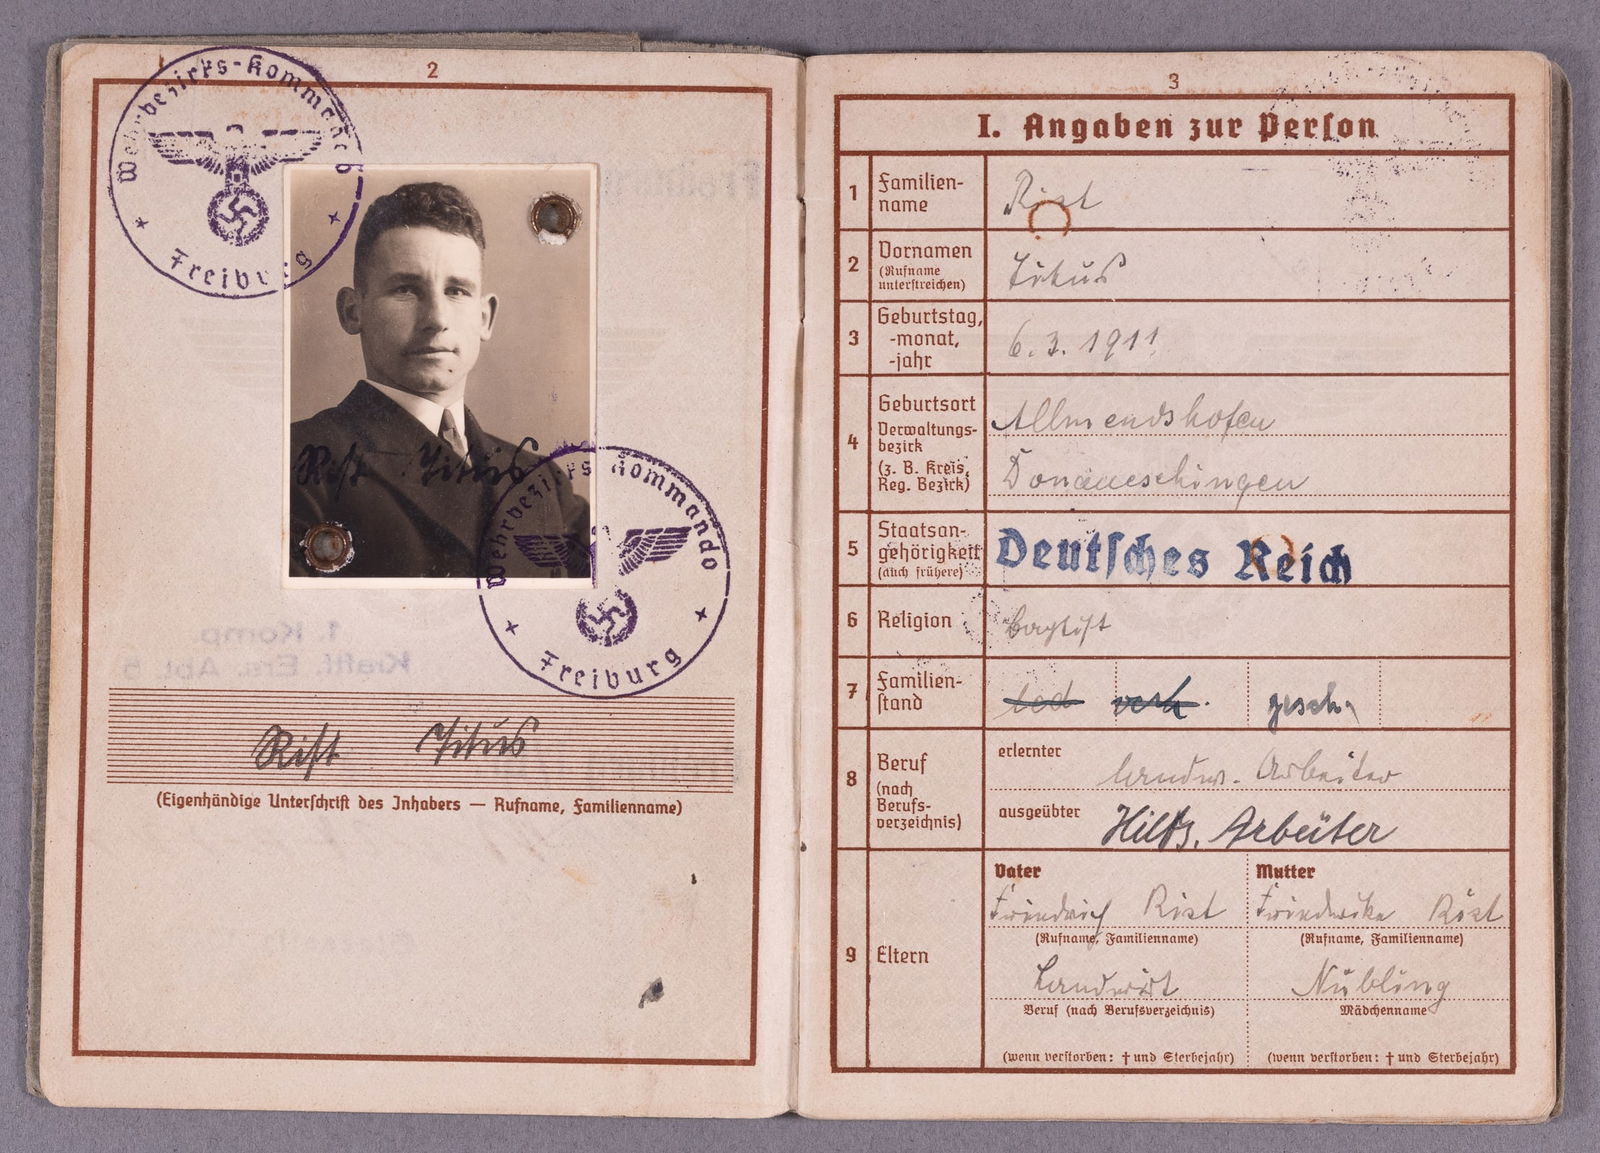 2
Wehrbezirks-Kommando
Freiburg
Rist Titus
Wehrbezirks-Kommando
Freiburg
1. Komp.
Kraftf. Ers. Abt. 5
Rist Titus
(Eigenhändige Unterschrift des Inhabers — Rufname, Familienname)
3
I. Angaben zur Person
1 Familien-
name
Rist
2 Vornamen
(Rufname
unterstreichen)
Titus
3 Geburtstag,
-monat,
-jahr
6.3.1911
4 Geburtsort
Verwaltungs-
bezirk
(z. B. Kreis,
Reg. Bezirk)
Allmendshofen
Donaueschingen
5 Staatsan-
gehörigkeit
(auch frühere)
Deutsches Reich
6 Religion
Baptist
7 Familien-
stand
led verh. gesch.
8 Beruf
(nach
Berufs-
verzeichnis)
erlernter
landw. Arbeiter
ausgeübter
Hilfs. Arbeiter
9 Eltern
Vater
Friedrich Rist
(Rufname, Familienname)
Landwirt
Beruf (nach Berufsverzeichnis)
(wenn verstorben: † und Sterbejahr)
Mutter
Friederike Rist
(Rufname, Familienname)
Nübling
Mädchenname
(wenn verstorben: † und Sterbejahr)